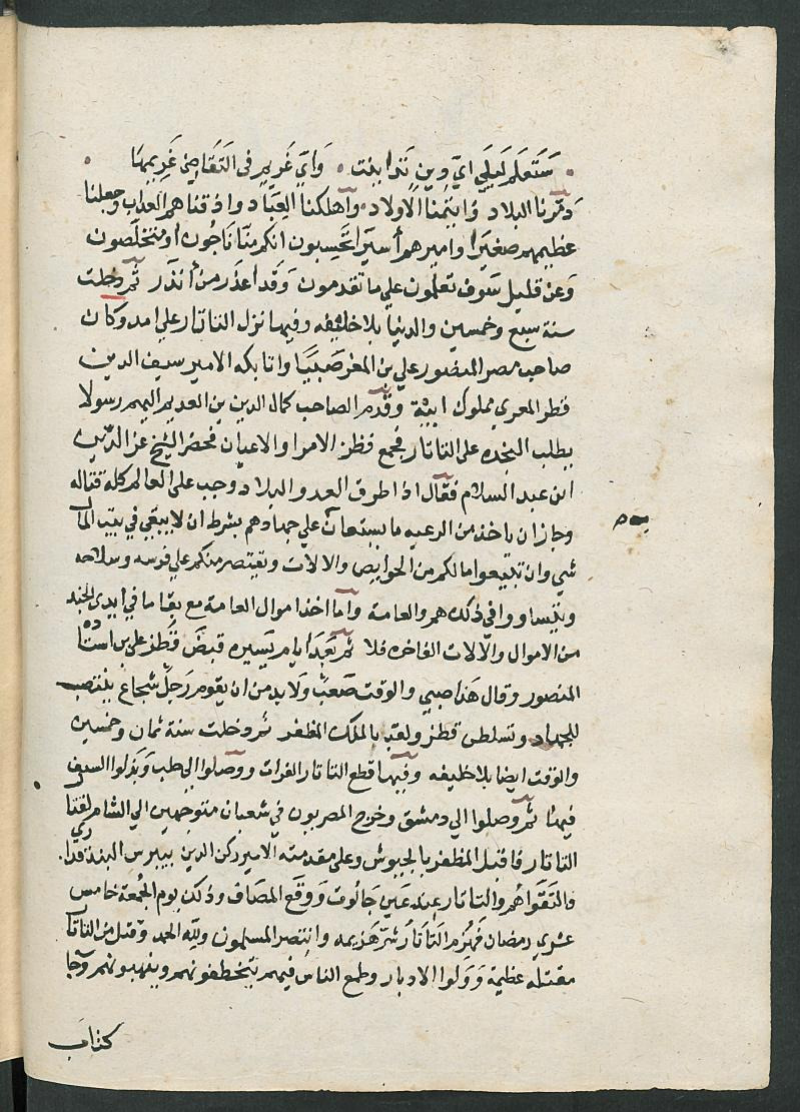 ستعلم ليلي اي دين تداينت • واي غريم في التقاضي غريمها •
دمرنا البلاد وايتمنا الاولاد واهلكنا العباد واذقناهم العذاب وجعلنا
عظيمهم صغيرا واميرهم أسيرا تحسبون انكم منا ناجون او متخلصون
وعن قليل سوف تعلمون علي ما تقدمون وقد اعذر من أنذر ثم دخلت
سنة سبع وخمسين والدنيا بلا خليفه وفيها نزل التاتار علي امد وكان
صاحب مصر المنصور علي بن المعز صبيا واتابكه الامير سيف الدين
قطز المعزي مملوك ابيه وقدم الصاحب كمال الدين بن العديم اليهم رسولا
بطلب النجده على التاتار فجمع قطز الامرا والاعيان فحضر الشيخ عز الدين
ابن عبد السلام فقال اذا طرق العدو البلاد وجب على العالم كله قتاله
وجاز ان ياخذ من الرعيه ما يستعان علي جهادهم بشرط ان لا يبقي في بيت المال
شي وان تبيعوا مالكم من الحوايص والالات ويقتصر منكم علي فرسه وسلاحه
ويتساووا في ذلك هم والعامة واما اخذ اموال العامة مع بقا ما في ايدي الجند
من الاموال والالات الفاخره فلا ثم بعد ايام يسيره قبض قطز علي بن استاذه
المنصور وقال هذا صبي والوقت صعب ولا بد من ان يقوم رجل شجاع ينتصب
للجهاد وتسلطن قطز ولقب بالملك المظفر ثم دخلت سنة ثمان وخمسين
والوقت ايضا بلا خليفه وفيها قطع التاتار الفرات ووصلوا الي حلب وبذلوا السيف
فيها ثم وصلوا الي دمشق وخرج المصريون في شعبان متوجهين الي الشام لقتال
التاتار فاقبل المظفر بالجيوش وعلى مقدمته الامير ركن الدين بيبرس البندقداري
فالتقوا هم والتاتار عند عين جالوت ووقع المصاف وذلك يوم الجمعة خامس
عشري رمضان فهزم التاتار شر هزيمه وانتصر المسلمون ولله الحمد وقتل من التاتار
مقتله عظيمة وولوا الادبار وطمع الناس فيهم يتخطفونهم وينهبونهم وجا
كتاب